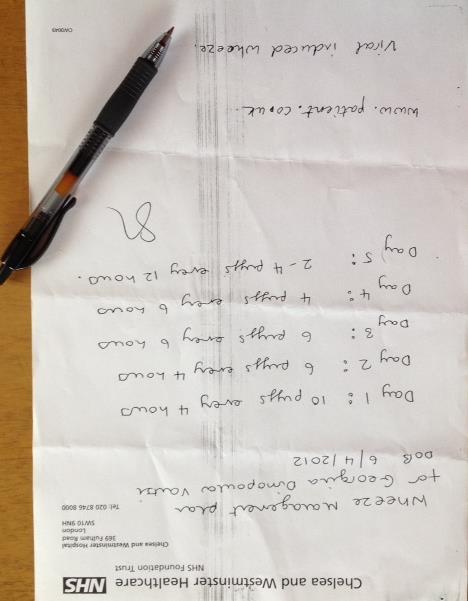 Chelsea and Westminster Healthcare NHS
NHS Foundation Trust
Chelsea and Westminster Hospital
369 Fulham Road
London
SW10 9NH
Tel: 020 8746 8000
Wheeze Management plan
for Georgina Dimopoulou
DOB 6/4/2012
Day 1: 10 puffs every 4 hours
Day 2: 6 puffs every 4 hours
Day 3: 6 puffs every 6 hours
Day 4: 4 puffs every 6 hours
Day 5: 2-4 puffs every 12 hours.
www.patient.co.uk.
Viral induced wheeze.